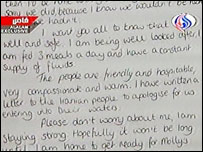 why we did, because I know we wouldn't be
hadn't.
خاص
ALALAM
EXCLUSIVE
I want you all to know that I
well and safe. I am being well looked after, I
am fed 3 meals a day and have a constant
supply of fluids
The people are friendly and hospitable,
very compassionate and warm. I have written a
letter to the Iranian people to apologise for us
entering into their waters.
Please don't worry about me, I am
staying strong. Hopefully it won't be long
I am home to get ready for Molly's